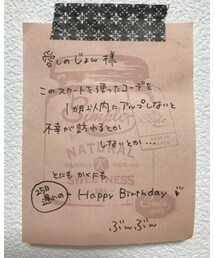 愛しのじょん様
このスカートを使ったコーデを
1ヵ月以内にアップしないと
不幸が訪れるとか
しないとか…
とにもかくにも
25日遅れの
Happy Birthday
ぶんぶん
NATURAL
SWEETNESS